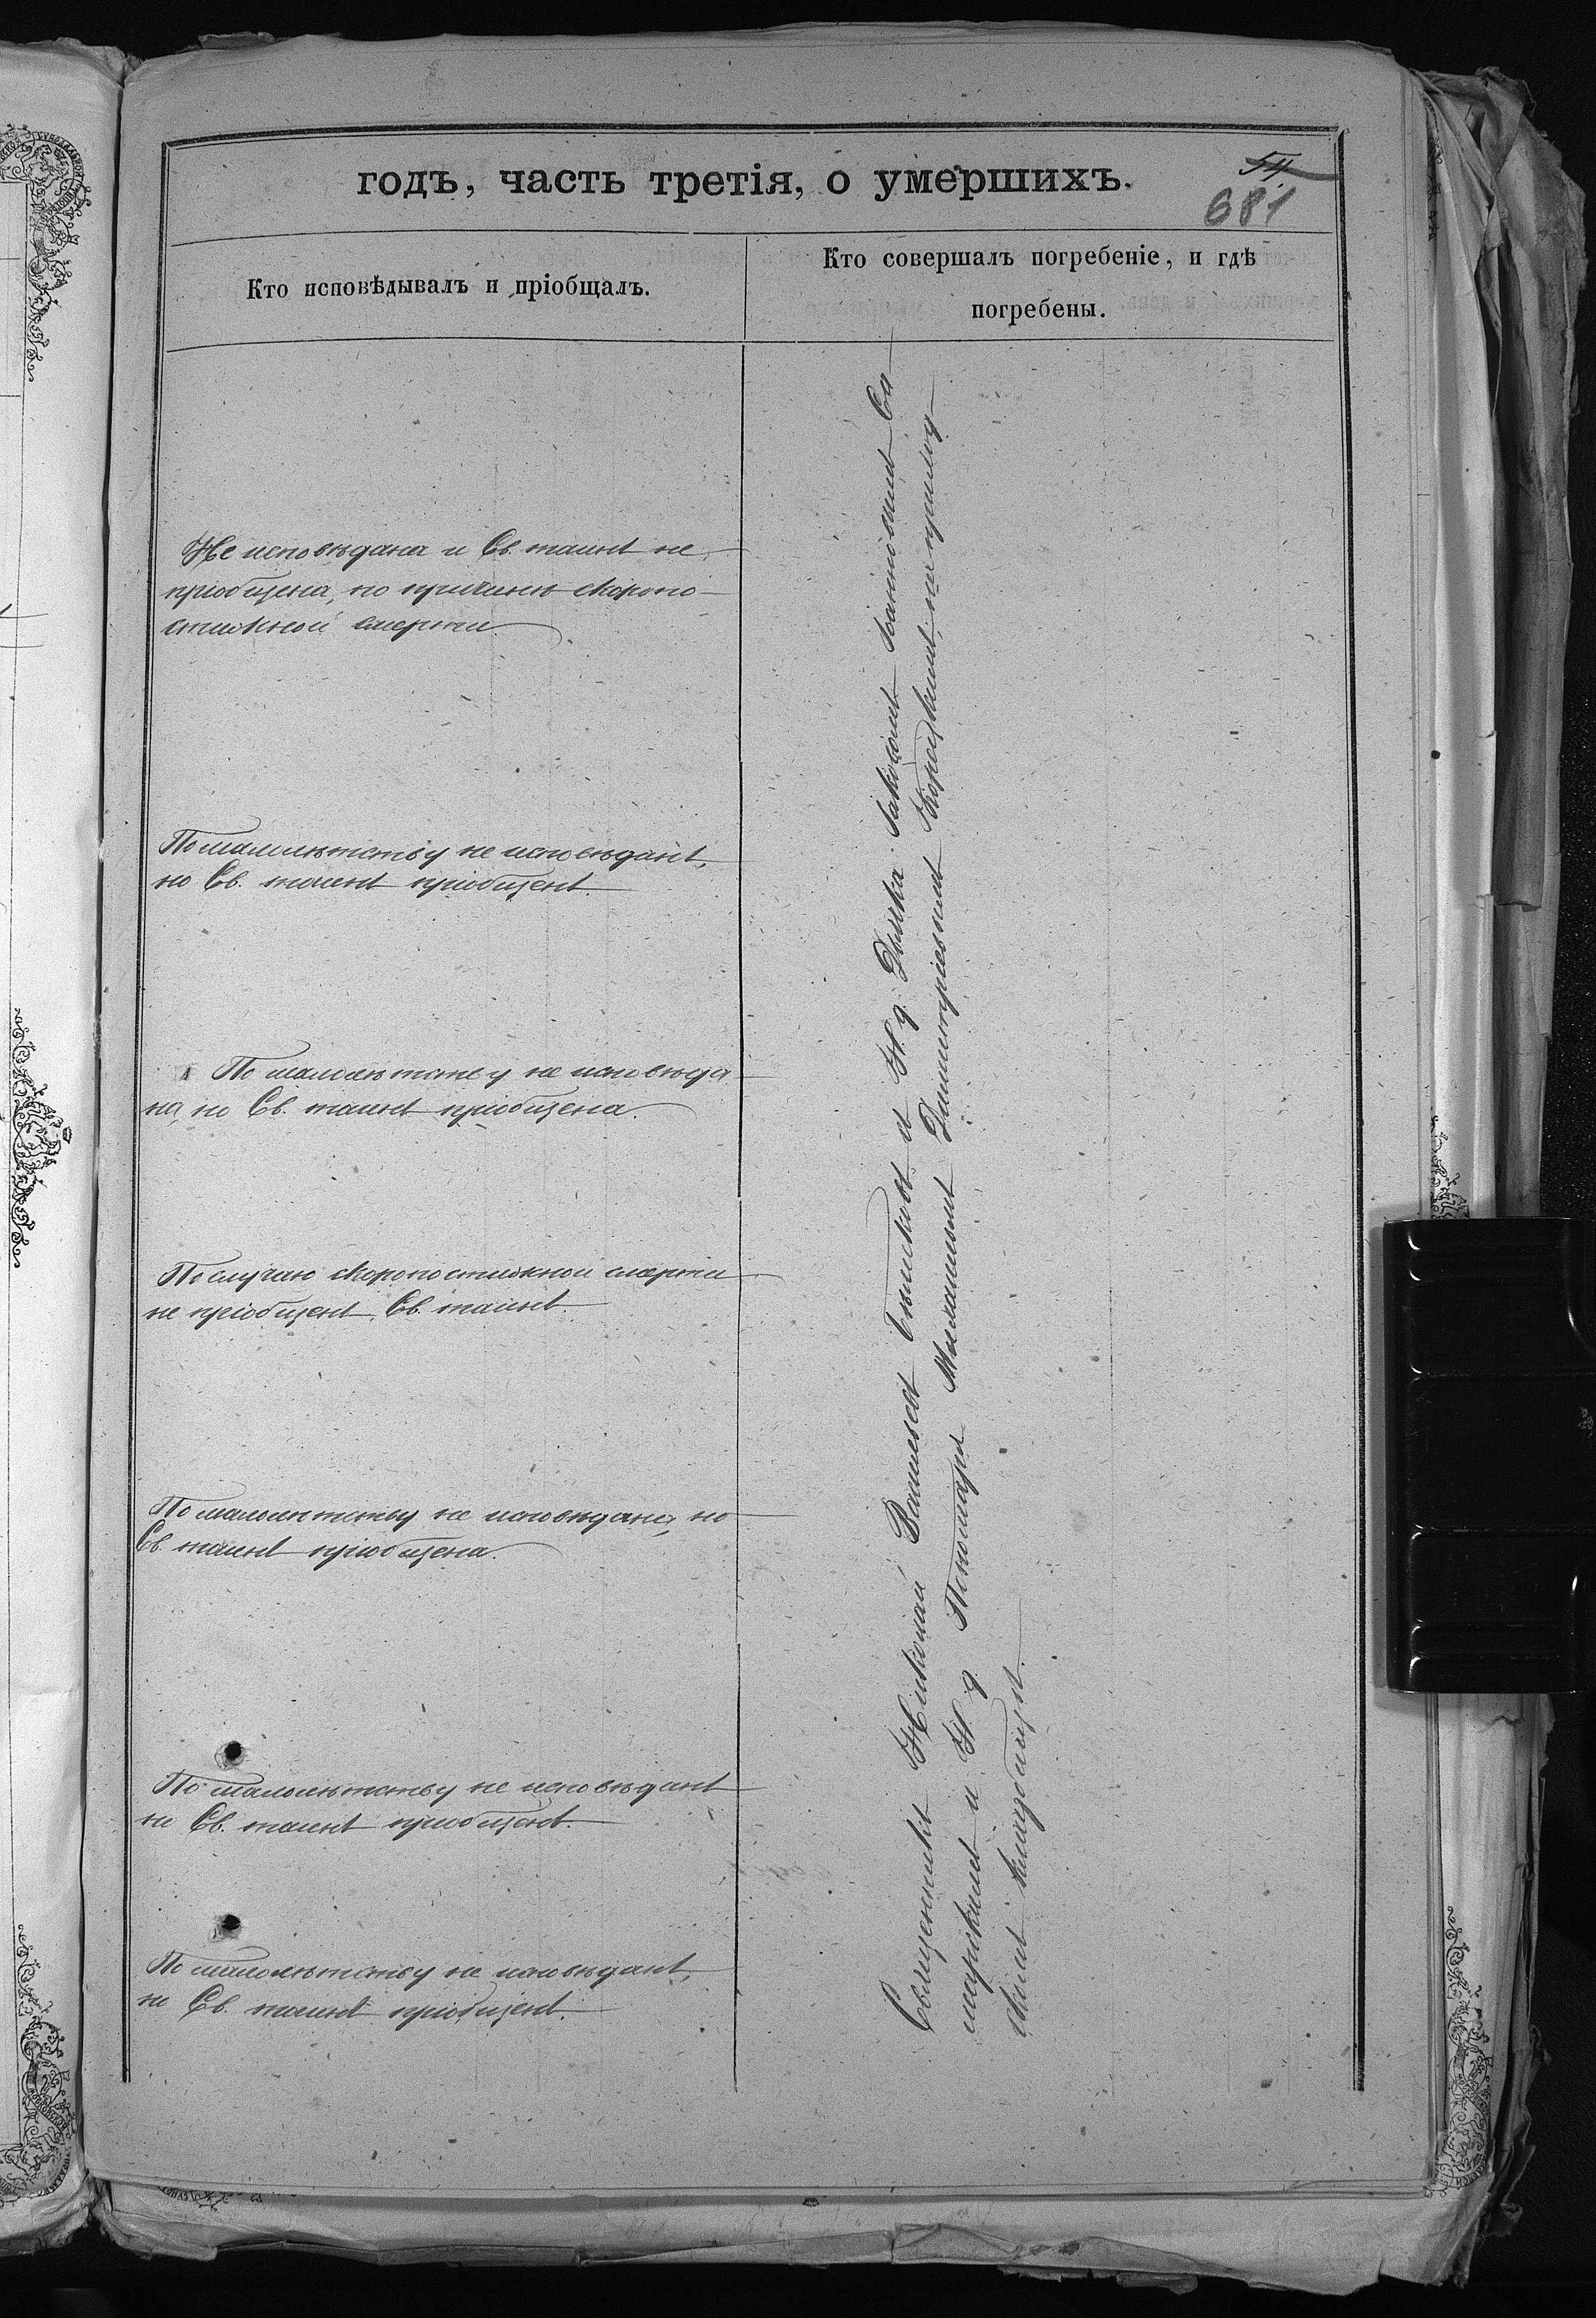 годъ, часть третія, о умершихъ.
54
681
Кто исповѣдывалъ и пріобщалъ.
Кто совершалъ погребеніе, и гдѣ
погребены.
Не исповѣдана и Св. таинъ не
пріобщена, по причинѣ скоропо-
стижной смерти.
По малолѣтству не исповѣданъ,
но Св. таинъ пріобщенъ.
По малолѣтству не исповѣда
на, но Св. таинъ пріобщена.
По случаю скоропостижной смерти
не пріобщенъ Св. таинъ.
По малолѣтству не исповѣдана, но
Св. таинъ пріобщена.
По малолѣтству не исповѣданъ
но Св. таинъ пріобщенъ.
По малолѣтству не исповѣданъ,
но Св. таинъ пріобщенъ.
Священникъ Николай Васильевъ съ И. д. Дьячка Іаковомъ Іоанновымъ Са
марскимъ и И. д. Пономаря Димитріевымъ на приход
скомъ кладбищѣ.